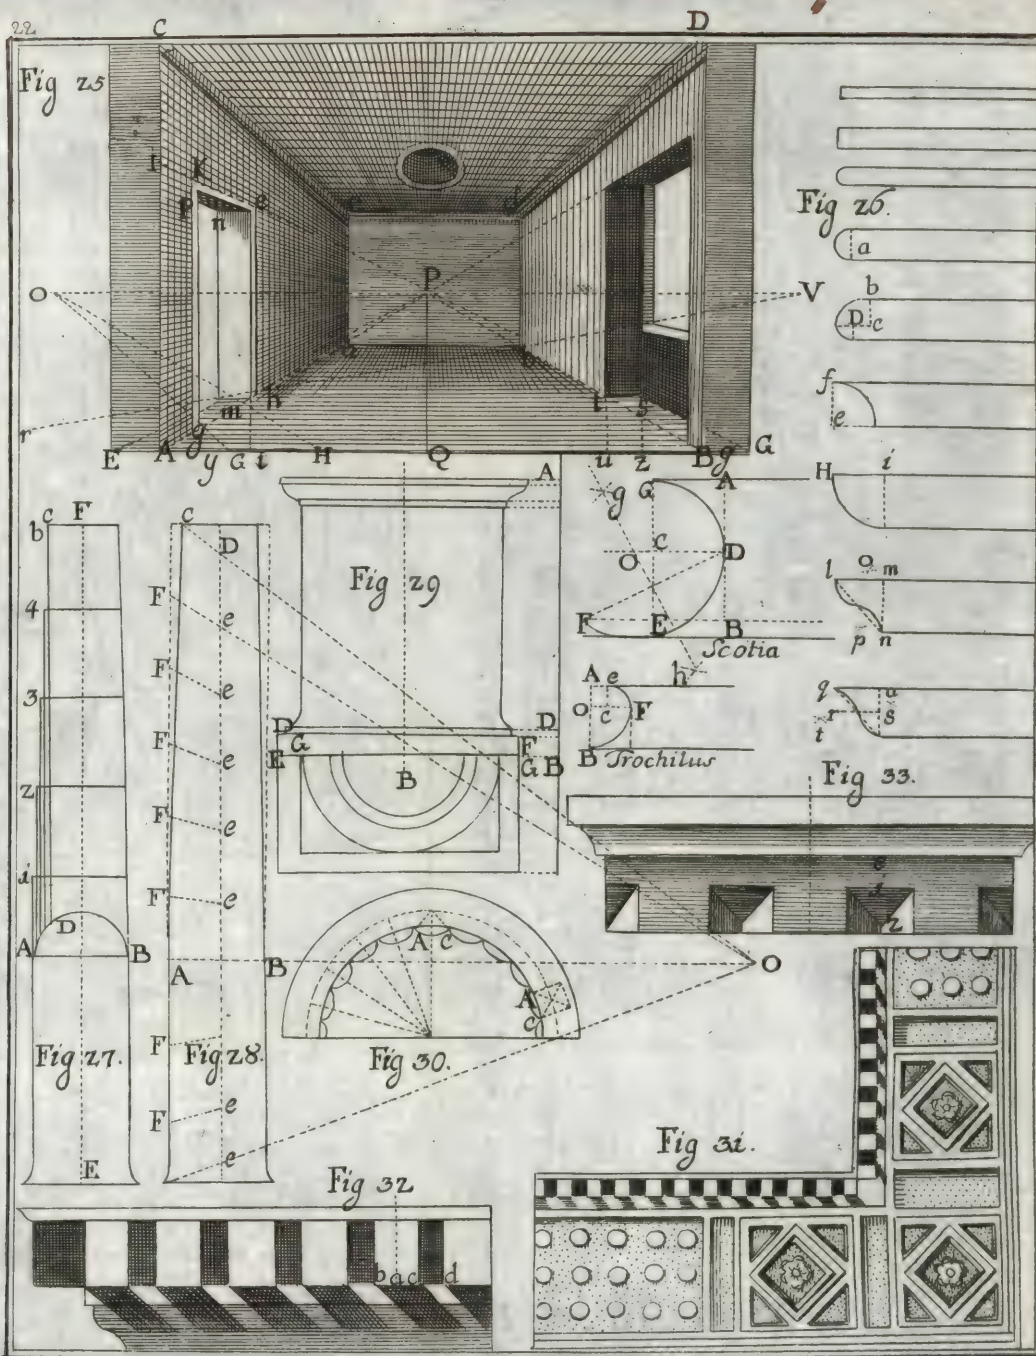 22
C D
Fig 25
I K
P n e c d
O P V
a b
r g m h t s
E A y G i H Q u z B g G
Fig 26.
a
b
D c
f
e
H i
l o m
p n
q u
r s
t
g G A
C
O D
F E B
Scotia
h
A e
o c F
B Trochilus
b c F
4
3
2
1
D
A B
Fig 27.
E
c
D
F e
F e
F e
F e
F e
A B O
F Fig 28.
F e
e
A
Fig 29
D D
G F
E B G B
A C
A
C
Fig 30.
Fig 33.
e
f
z
Fig 31.
Fig 32
b a c d